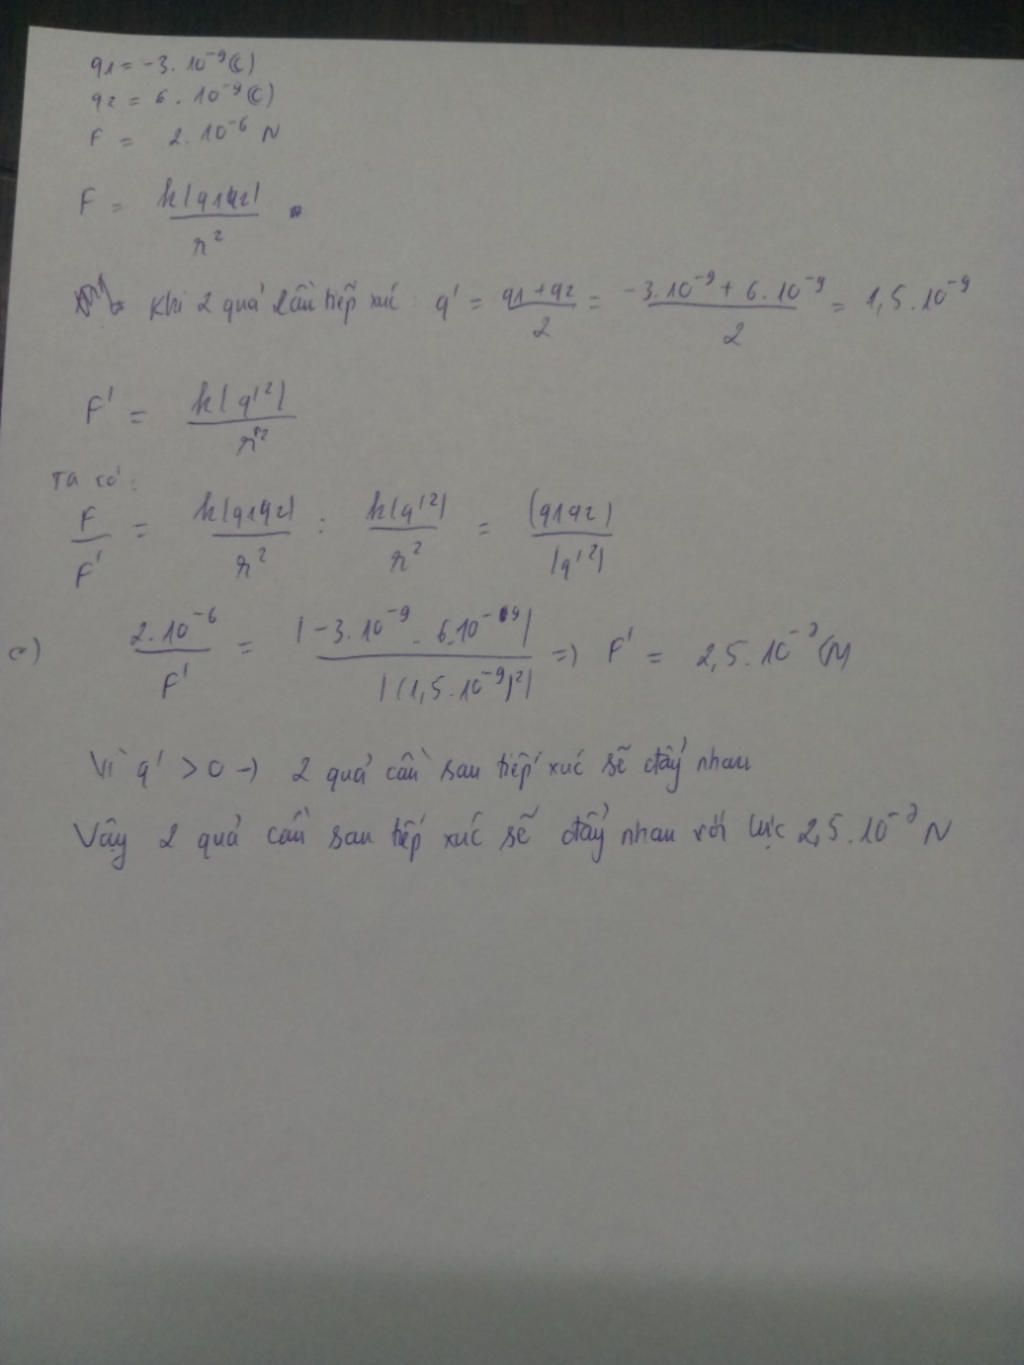 q1 = -3. 10^-9 (C)
q2 = 6 . 10^-9 (C)
F = 2. 10^-6 N
F = k|q1q2| / r^2
Khi 2 quả cầu tiếp xúc q' = (q1+q2)/2 = (-3.10^-9 + 6.10^-9)/2 = 1,5.10^-9
F' = k|q'^2| / r^2
Ta có:
F/F' = k|q1q2|/r^2 : k|q'^2|/r^2 = |q1q2|/|q'^2|
2.10^-6/F' = |-3.10^-9 . 6.10^-9|/|(1,5.10^-9)^2| => F' = 2,5.10^-7 (N)
Vì q' > 0 -> 2 quả cầu sau tiếp xúc sẽ đẩy nhau
Vậy 2 quả cầu sau tiếp xúc sẽ đẩy nhau với lực 2,5.10^-7 N